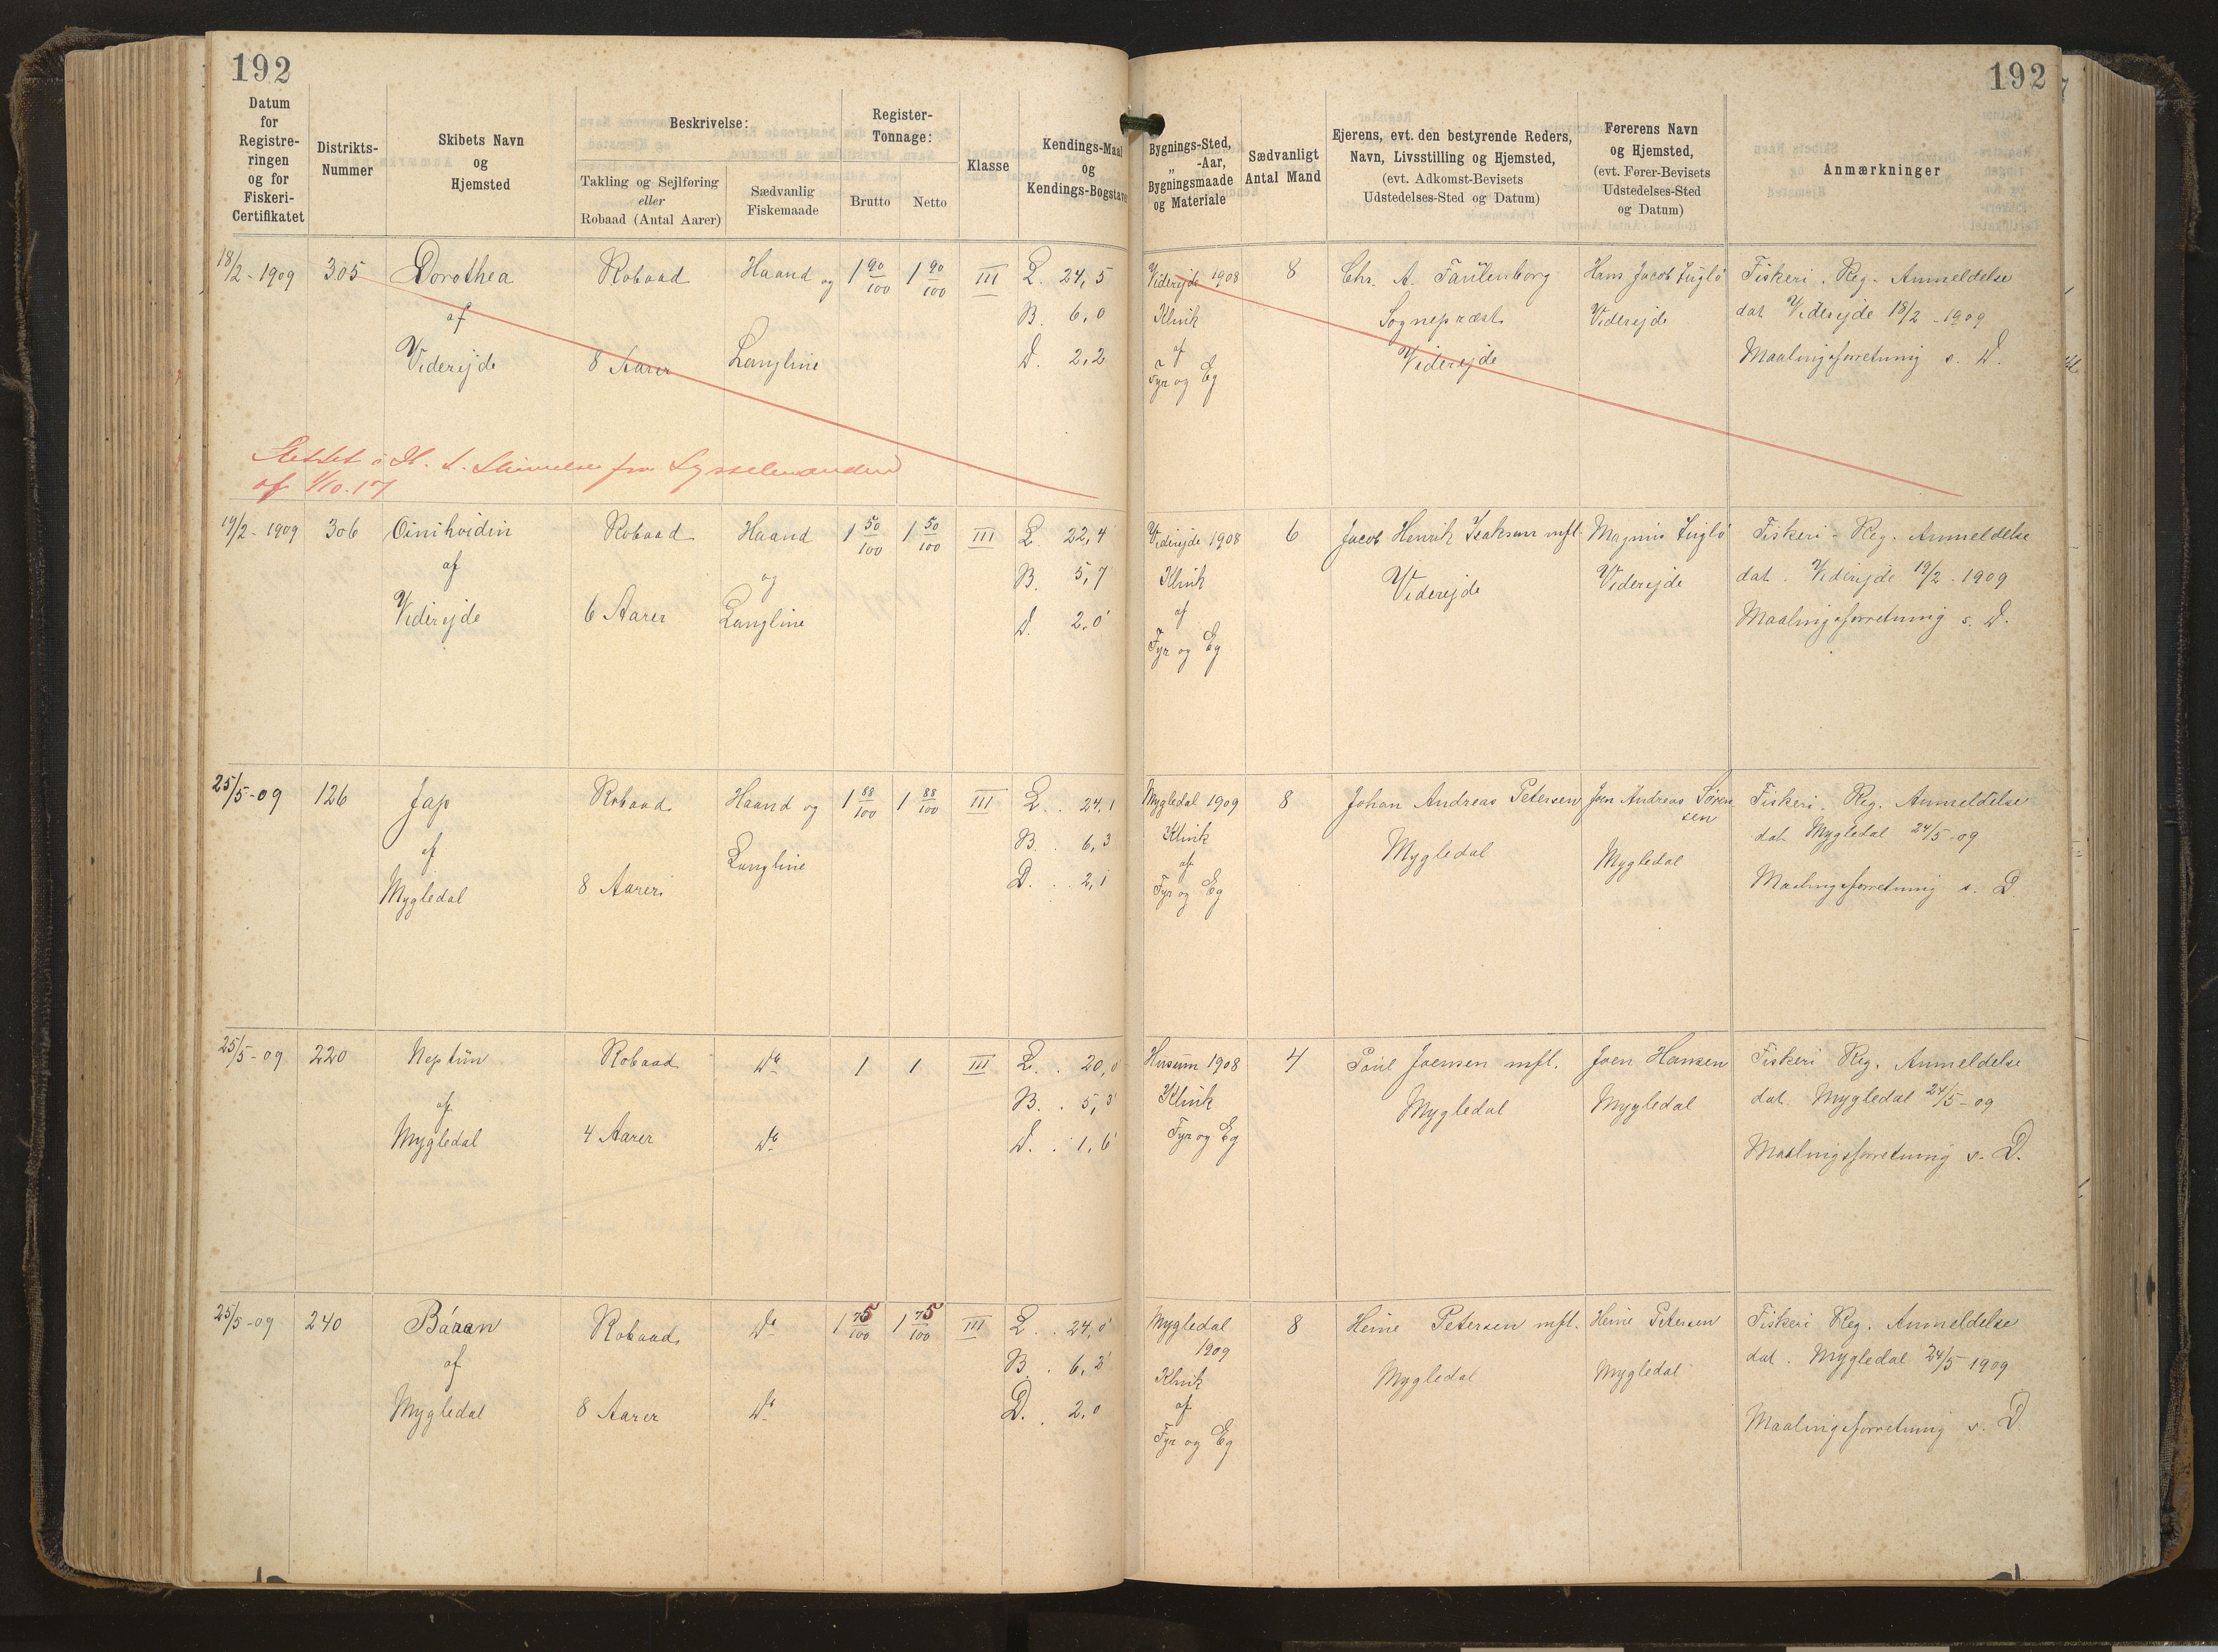 192
192
Datum
for
Registre-
ringen
og for
Fiskeri-
Certifikatet
Distrikts-
Nummer
Skibets Navn
og
Hjemsted
Beskrivelse:
Takling og Sejlføring
eller
Robaad (Antal Aarer)
Sædvanlig
Fiskemaade
Register-
Tonnage:
Brutto
Netto
Klasse
Kendings-Maal
og
Kendings-Bogstaver
Bygnings-Sted,
„ -Aar,
Bygningsmaade
og Materiale
Sædvanligt
Antal Mand
Ejerens, evt. den bestyrende Reders,
Navn, Livsstilling og Hjemsted,
(evt. Adkomst-Bevisets
Udstedelses-Sted og Datum)
Førerens Navn
og Hjemsted,
(evt. Fører-Bevisets
Udstedelses-Sted
og Datum)
Anmærkninger
18/2-1909 305 Dorothea Robaad Haand og 1 90/100 1 90/100 III L. 24,5 Viderejde 1908 8 Chr. A. Hans Jacob Fiskeri. Reg. Anmeldelse
af B. 6,0 Klink Sognepræst Viderejde dat Viderejde 18/2-1909
Viderejde 8 Aarer Langline D. 2,2 af Viderejde Maalingsforretning s. D.
Fyr og Eg
Slettet fra Sysselmanden
af 1/10.17
19/2-1909 306 Robaad Haand 1 50/100 1 50/100 III L. 22,4 Viderejde 1908 6 Jacob Henrik Isaksen mfl. Magnus Fiskeri-Reg. Anmeldelse
af og B. 5,7 Klink Viderejde Viderejde dat. Viderejde 19/2-1909
Viderejde 6 Aarer Langline D. 2,0 af Maalingsforretning s. D.
Fyr og Eg
25/5-09 126 Robaad Haand og 1 88/100 1 88/100 III L. 24,1 Mygledal 1909 8 Johan Andreas Petersen Joen Andreas Søren Fiskeri. Reg. Anmeldelse
sen
af B. 6,3 Klink Mygledal Mygledal dat Mygledal 24/5-09
Mygledal 8 Aarer Langline D. 2,1 af Maalingsforretning s. D.
Fyr og Eg
25/5-09 220 Neptun Robaad Do 1 1 III L. 20,0 Husum 1908 4 Poul Joensen mfl. Joen Hansen Fiskeri Reg. Anmeldelse
af B. 5,3 Klink Mygledal Mygledal dat. Mygledal 24/5-09
Mygledal 4 Aarer Do D. 1,6 Fyr og Eg Maalingsforretning s. D.
25/5-09 240 Báran Robaad Do 1 75/100 1 75/100 III L. 24,0 Mygledal 8 Heine Petersen mfl. Heine Petersen Fiskeri Reg. Anmeldelse
1909
af B. 6,2 Klink Mygledal Mygledal dat. Mygledal 24/5 1909
Mygledal 8 Aarer Do D. 2,0 af Maalingsforretning s. D.
Fyr og Eg